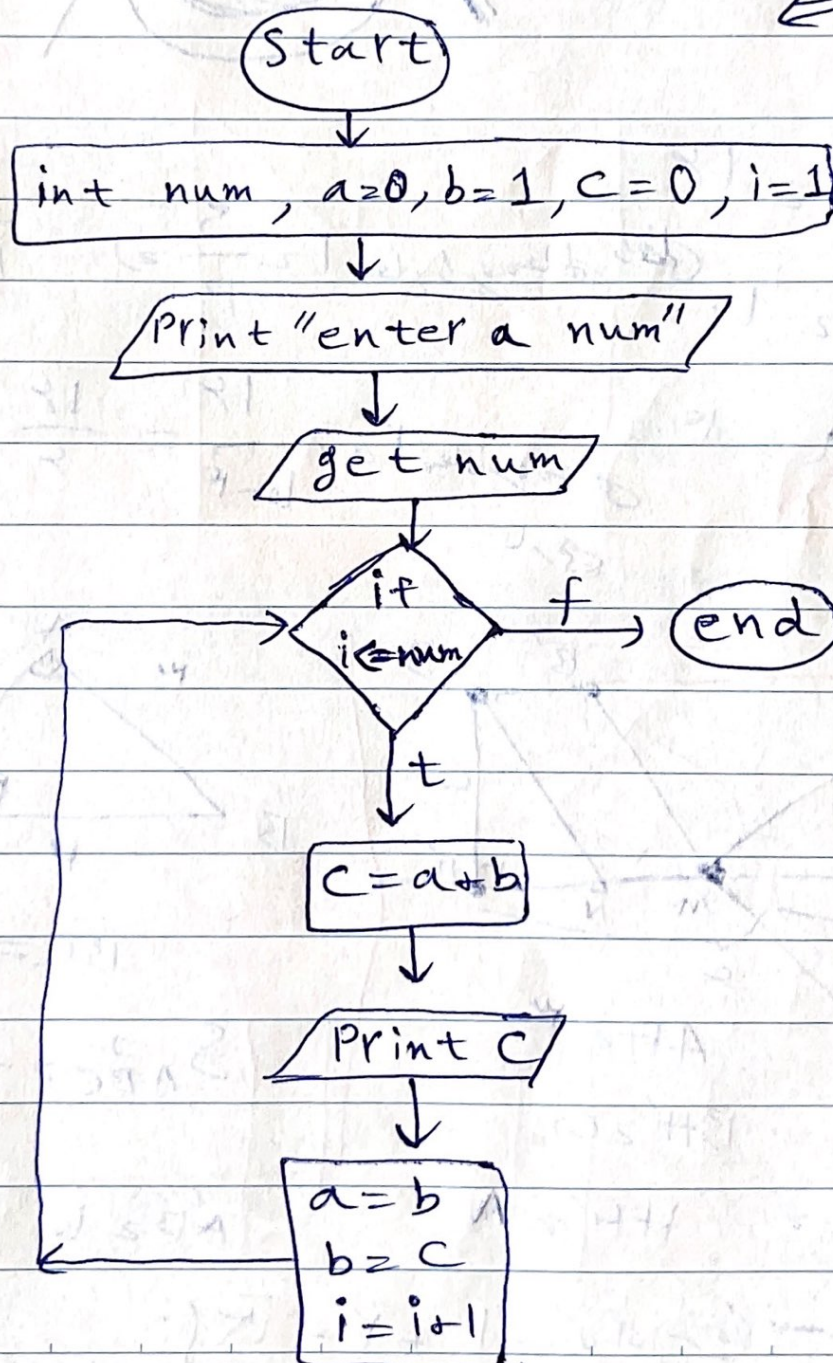 Start
int num, a=0, b=1, C=0, i=1
Print "enter a num"
get num
if
i<=num
f
end
t
C=a+b
Print C
a=b
b=C
i=i+1